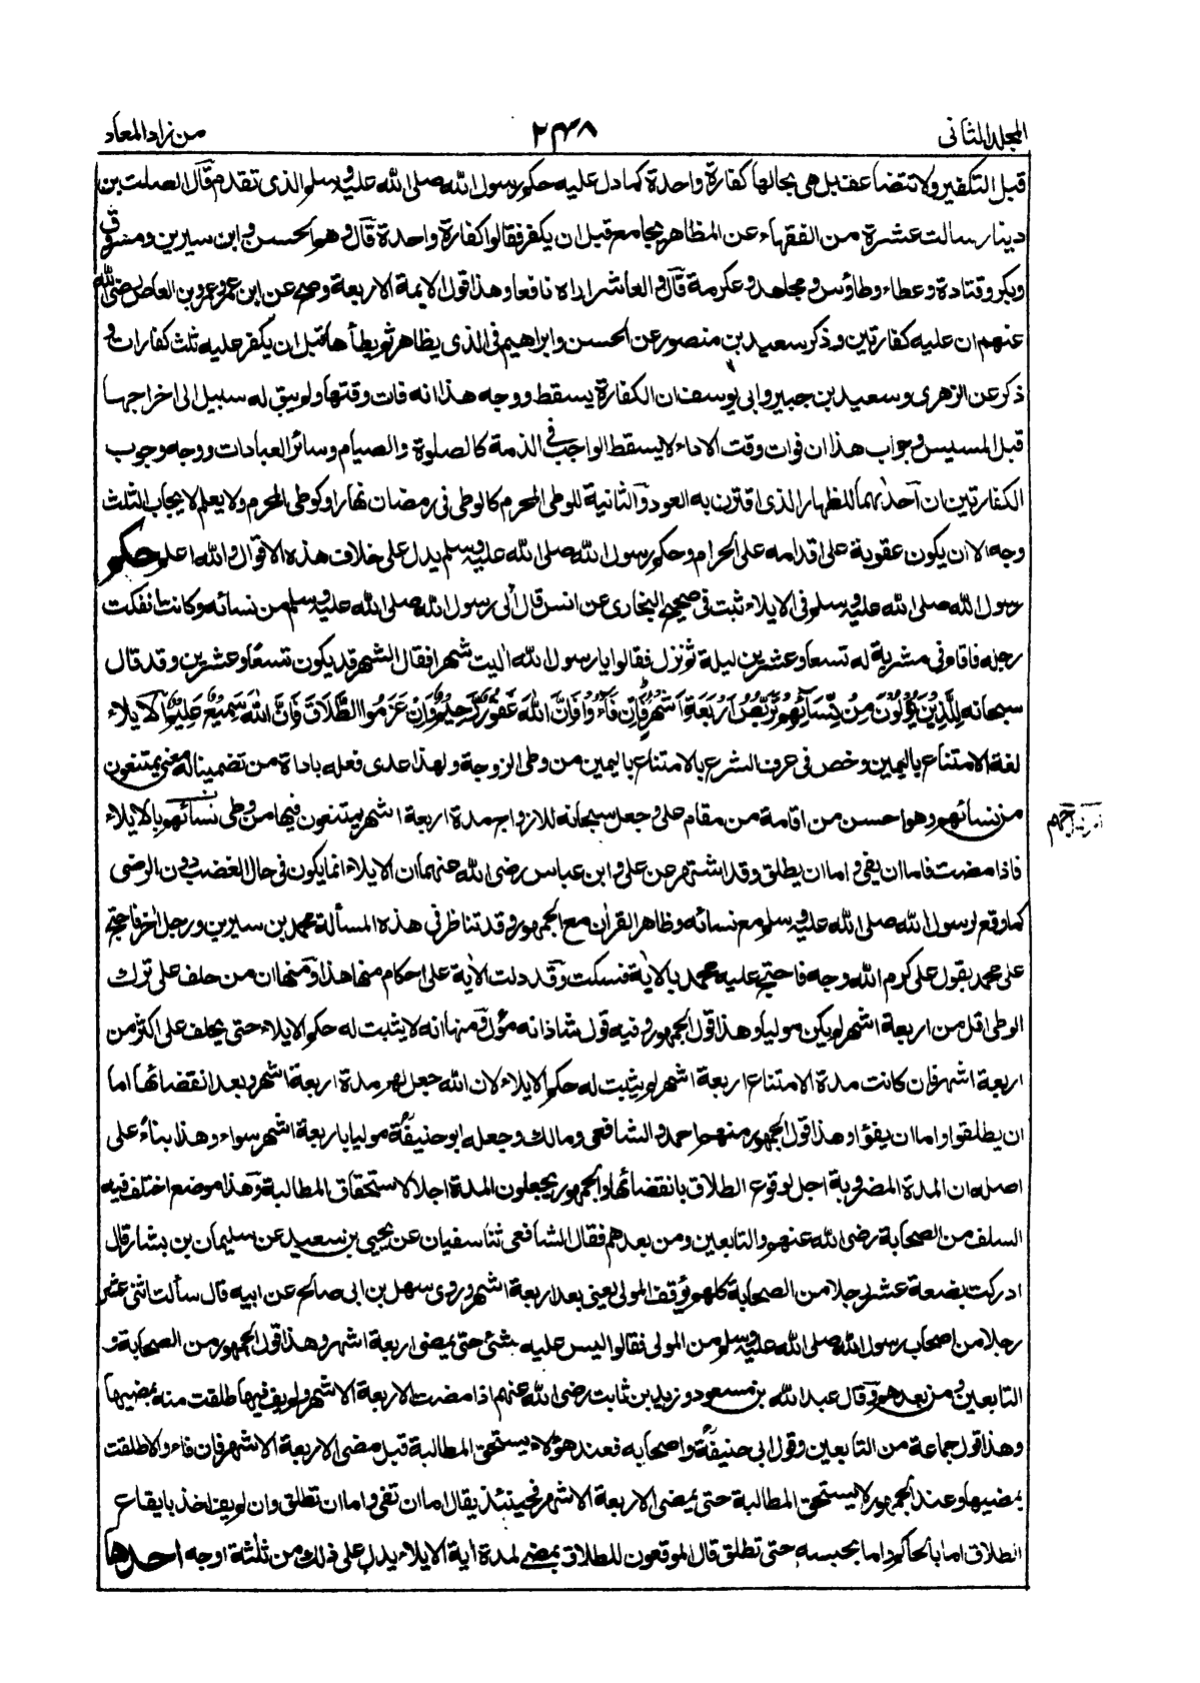 المجلد الثاني ٢٣٨ من زاد المعاد
قبل التكفير ولا تتضاعف بل هي بحالها كفارة واحدة كما دل عليه حكم رسول الله صلى الله عليه وسلم الذي تقدم قال الصلت بن
دينار سالت عشرة من الفقهاء عن المظاهر يجامع قبل ان يكفر فقالوا كفارة واحدة قال وهم الحسن وابن سيرين ومسروق
وبكر وقتادة وعطاء وطاؤس ومجاهد وعكرمة قال والعاشر اراه نافعا وهذا قول الايمة الاربعة وصح عن ابن عمر وعمرو بن العاص رضي الله
عنهم ان عليه كفارتين وذكر سعيد بن منصور عن الحسن وابراهيم في الذي يظاهر ثم يطأها قبل ان يكفر عليه ثلث كفارات و
ذكر عن الزهري وسعيد بن جبير وابي يوسف ان الكفارة يسقط ووجه هذا انه فات وقتها ولم يبق له سبيل الى اخراجها
قبل المسيس وجواب هذا ان فوات وقت الاداء لا يسقط الواجب في الذمة كالصلوة والصيام وسائر العبادات ووجه وجوب
الكفارتين ان احدهما للظهار الذي اقترن به العود والثانية للوطي المحرم كالوطي في رمضان نهارا وكوطي المحرم ولا يعلم لايجاب الثلث
وجه الا ان يكون عقوبة على اقدامه على الحرام وحكم رسول الله صلى الله عليه وسلم يدل على خلاف هذه الاقوال والله اعلم حكم
رسول الله صلى الله عليه وسلم في الايلاء ثبت في صحيح البخاري عن انس قال آلى رسول الله صلى الله عليه وسلم من نسائه وكانت انفكت
رجله فاقام في مشربة له تسعا وعشرين ليلة ثم نزل فقالوا يا رسول الله اليت شهرا فقال الشهر قد يكون تسعا وعشرين وقد قال
سبحانه لِلَّذِينَ يُؤْلُونَ مِنْ نِسَائِهِمْ تَرَبُّصُ أَرْبَعَةِ أَشْهُرٍ فَإِنْ فَاءُوا فَإِنَّ اللهَ غَفُورٌ رَحِيمٌ وَإِنْ عَزَمُوا الطَّلَاقَ فَإِنَّ اللهَ سَمِيعٌ عَلِيمٌ الايلاء
لغة الامتناع باليمين وخص في عرف الشرع بالامتناع باليمين من وطي الزوجة ولهذا عدى فعله باداة من تضمينا له معنى يمتنعون
من نسائهم وهو احسن من اقامة من مقام على وجعل سبحانه للازواج مدة اربعة اشهر يمتنعون فيها من وطي نسائهم بالايلاء
فاذا مضت فاما ان يفي واما ان يطلق وقد اشتهر عن علي وابن عباس رضي الله عنهما ان الايلاء انما يكون في حال الغضب دون الرضى
كما وقع لرسول الله صلى الله عليه وسلم مع نسائه وظاهر القران مع الجمهور وقد تناظر في هذه المسألة محمد بن سيرين ورجل اخر فاحتج
على محمد بقول علي كرم الله وجه فاحتج عليه محمد بالاية فسكت وقد دلت الاية على احكام منها هذا ومنها ان من حلف على ترك
الوطي اقل من اربعة اشهر لم يكن موليا وهذا قول الجمهور وفيه قول شاذ انه مؤل ومنها انه لا يثبت له حكم الايلاء حتى يحلف على اكثر من
اربعة اشهر فان كانت مدة الامتناع اربعة اشهر لم يثبت له حكم الايلاء لان الله جعل لهم مدة اربعة اشهر وبعد انقضائها اما
ان يطلقوا واما ان يفؤا وهذا قول الجمهور منهم احمد والشافعي ومالك وجعله ابو حنيفة موليا باربعة اشهر سواء وهذا بناء على
اصله ان المدة المضروبة اجل لوقوع الطلاق بانقضائها والجمهور يجعلون المدة اجلا لاستحقاق المطالبة وهذا موضع اختلف فيه
السلف من الصحابة رضي الله عنهم والتابعين ومن بعدهم فقال الشافعي ثنا سفيان عن يحيى بن سعيد عن سليمان بن يسار قال
ادركت بضعة عشر رجلا من الصحابة كلهم يوقف المولى يعني بعد اربعة اشهر وروى سهل بن ابي صالح عن ابيه قال سألت اثني عشر
رجلا من اصحاب رسول الله صلى الله عليه وسلم من المولى فقالوا ليس عليه شئ حتى يمضي اربعة اشهر وهذا قول الجمهور من الصحابة و
التابعين ومن بعدهم وقال عبد الله بن مسعود وزيد بن ثابت رضي الله عنهم اذا مضت الاربعة الاشهر ولم يف فيها طلقت منه بمضيها
وهذا قول جماعة من التابعين وقول ابي حنيفة واصحابه فعند هؤلاء يستحق المطالبة قبل مضي الاربعة الاشهر فان فاء والا طلقت
بمضيها وعند الجمهور لا يستحق المطالبة حتى يمضي الاربعة الاشهر فحينئذ يقال اما ان تفي واما ان تطلق وان لم يف اخذ بايقاع
الطلاق اما بالحاكم واما بحبسه حتى تطلق قال الموقعون للطلاق بمضي لمدة اية الايلاء يدل على ذلك من ثلثة اوجه احدها